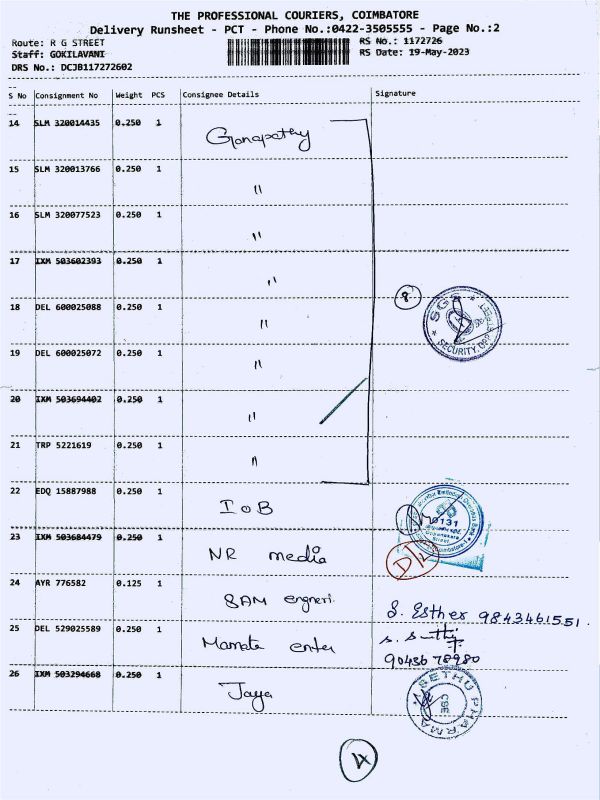 THE PROFESSIONAL COURIERS, COIMBATORE
Delivery Runsheet - PCT - Phone No.:0422-3505555 - Page No.:2
Route: R G STREET RS No.: 1172726
Staff: GOKILAVANI RS Date: 19-May-2023
DRS No.: DCJB117272602
S No Consignment No Weight PCS Consignee Details Signature
14 SLM 320014435 0.250 1 Ganapathy
15 SLM 320013766 0.250 1 "
16 SLM 320077523 0.250 1 "
17 IXM 503602393 0.250 1 "
18 DEL 600025088 0.250 1 " 8
SGS STREET
SECURITY
19 DEL 600025072 0.250 1 "
20 IXM 503694402 0.250 1 "
21 TRP 5221619 0.250 1 "
22 EDQ 15887988 0.250 1 IOB
0131
23 IXM 503684479 0.250 1 NR media D/L
24 AYR 776582 0.125 1 SAM engneri.
S. Esther 9843461551.
25 DEL 529025589 0.250 1 Mamata enter
9043678980
26 IXM 503294668 0.250 1 Jaya
SETHU PHARMA
CBE